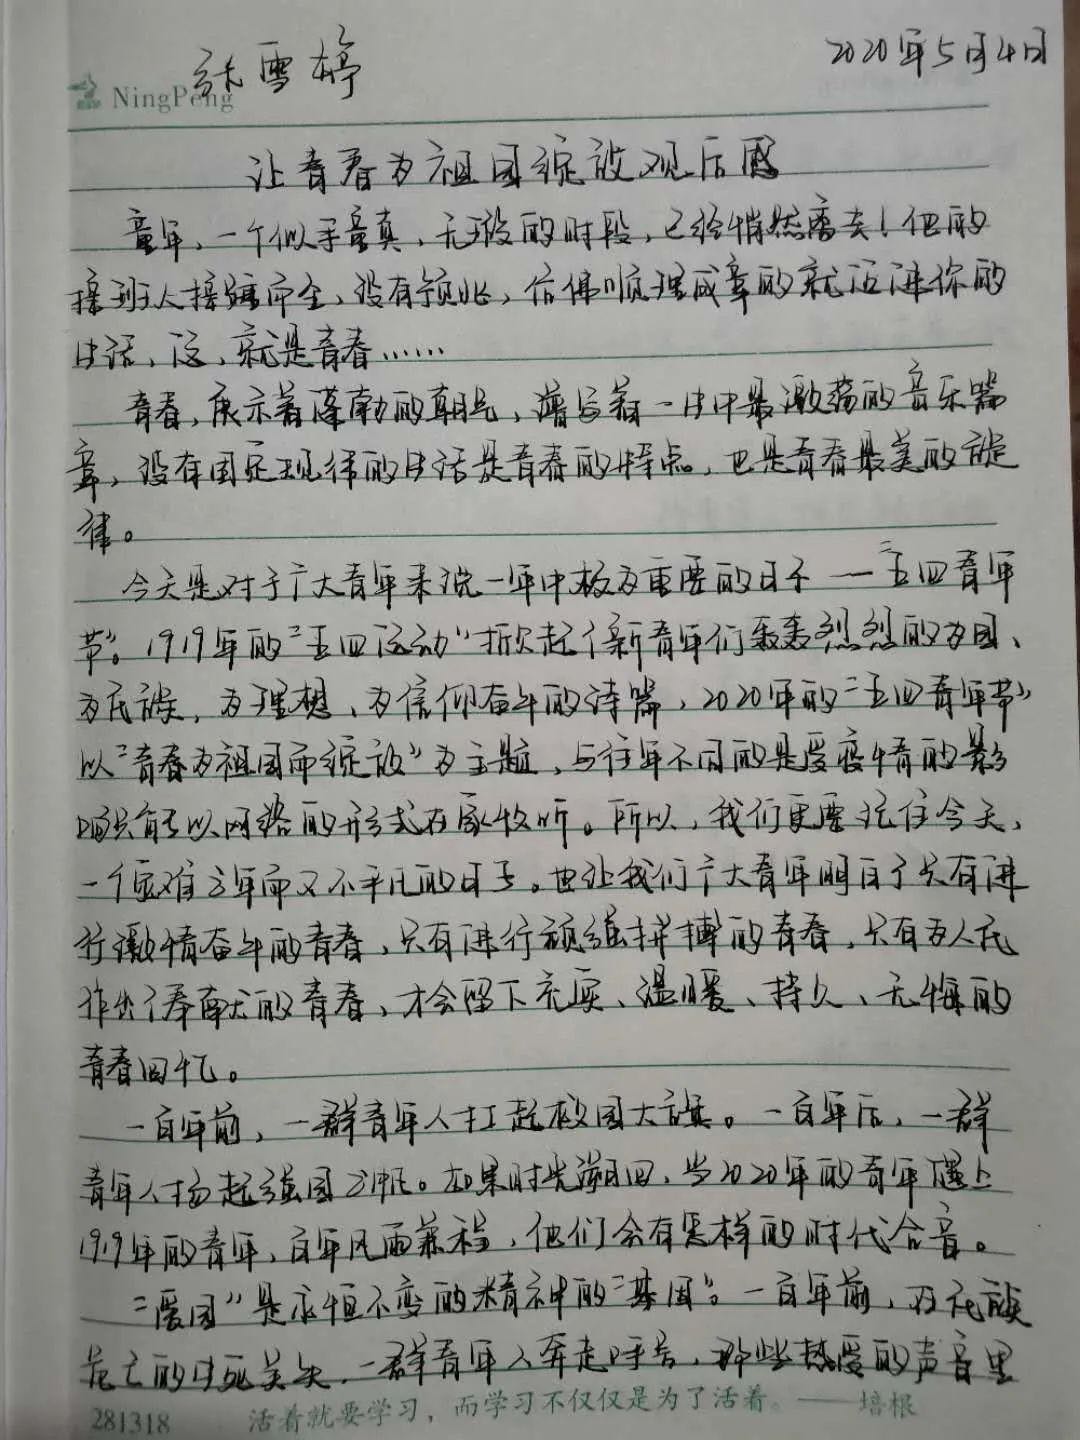 张雪婷
2020年5月4日
NingPeng
让青春为祖国绽放观后感
童年,一个似乎童真,无瑕的时段,已经悄然离去!他的
接班人接踵而至,没有预兆,仿佛顺理成章的就迈进你的
生活,这,就是青春……
青春,展示着蓬勃的朝气,谱写着一生中最激荡的音乐篇
章,没有固定规律的生活是青春的特点,也是青春最美的旋
律。
今天是对于广大青年来说一年中极为重要的日子—"五四青年
节"。1919年的"五四运动"掀起了新青年们轰轰烈烈的为国、
为民族,为理想、为信仰奋斗的诗篇,2020年的"五四青年节"
以"青春为祖国而绽放"为主题,与往年不同的是受疫情的影
响只能以网络的形式在家收听。所以,我们更要记住今天,
一个灾难之年而又不平凡的日子。也让我们广大青年明白了只有进
行激情奋斗的青春,只有进行顽强拼搏的青春,只有为人民
作出了奉献的青春,才会留下充实、温暖、持久、无悔的
青春回忆。
一百年前,一群青年人扛起救国大旗。一百年后,一群
青年人扬起强国之帆。如果时光溯回,当2020年的青年遇上
1919年的青年,百年风雨兼程,他们会有怎样的时代合音。
"爱国"是永恒不变的精神的"基因"。一百年前,在民族
危亡的生死关头,一群青年人奔走呼号,那些热爱的声音里
281318
活着就要学习,而学习不仅仅是为了活着。——培根